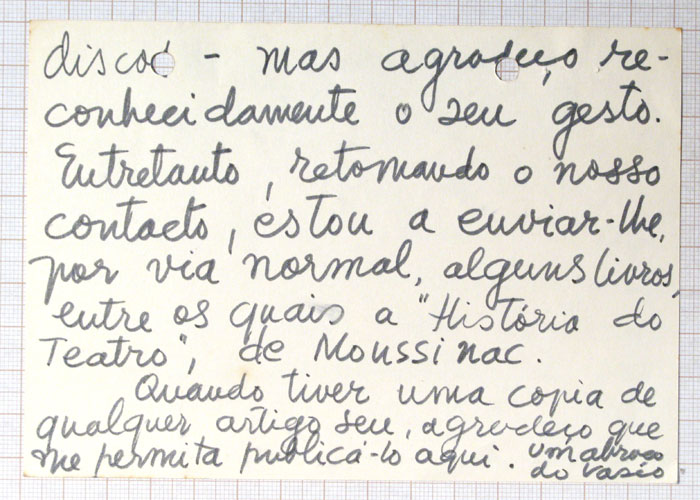 discos - mas agradeço re-
conhecidamente o seu gesto.
Entretanto, retomando o nosso
contacto, estou a enviar-lhe,
por via normal, alguns livros,
entre os quais a "História do
Teatro", de Moussinac.
Quando tiver uma copia de
qualquer artigo seu, agradeço que
me permita publicá-lo aqui. Um abraço
do Vasco